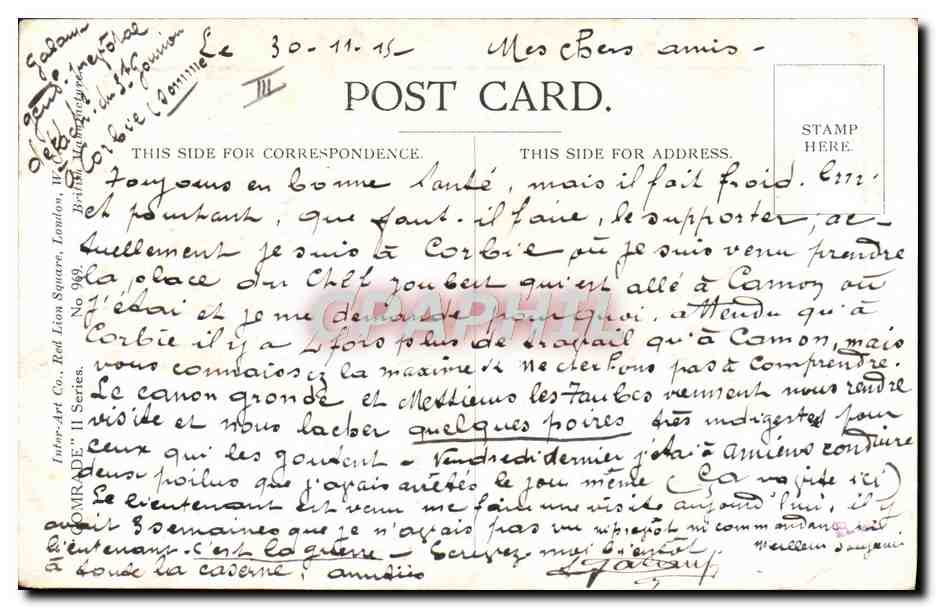 Le 30-11-15 Mes chers amis -
III
POST CARD.
STAMP
HERE.
THIS SIDE FOR CORRESPONDENCE.
THIS SIDE FOR ADDRESS.
gend.
Corbie (Somme)
Inter-Art Co., Red Lion Square, London, W.
British Manufacture
"COMRADE" II Series. No 969.
Toujours en bonne santé, mais il fait froid.
et pourtant, que faut-il faire, le supporter, ac-
tuellement je suis à Corbie où je suis venu prendre
la place du Chef Joubert qui est allé à Camon où
j'étai et je me demande pourquoi, attendu qu'à
Corbie il y a 2 fois plus de travail qu'à Camon, mais
vous connaissez la maxime ne cherchons pas à comprendre.
Le canon gronde et Messieurs les Taubes viennent nous rendre
visite et nous lacher quelques poires très indigestes pour
ceux qui les goutent - Vendredi dernier j'étai à Amiens conduire
deux poilus que j'avais arrêtés le jour même (ça va vite ici)
Le lieutenant est venu me faire une visite aujourd'hui, il y
avait 3 semaines que je n'avais pas vu ni prévôt ni commandant ni
lieutenant - c'est la guerre - Ecrivez-moi bientôt
Meilleur souvenir
à toute la caserne, amitiés
CPAPHIL